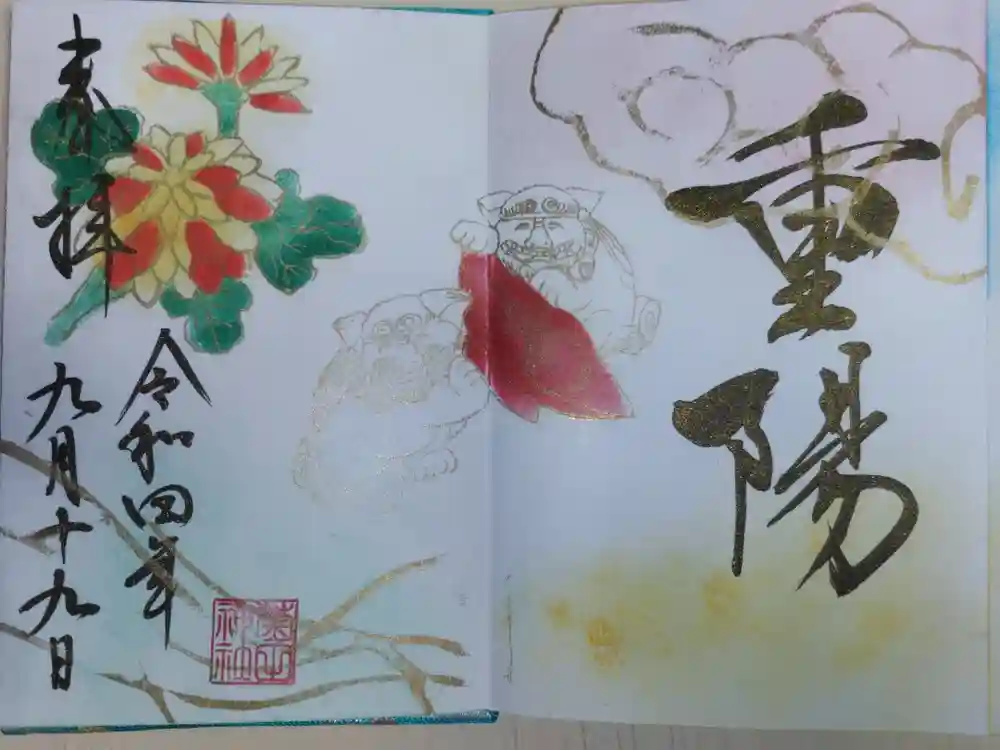 重陽
奉拝
令和四年
九月十九日
神社